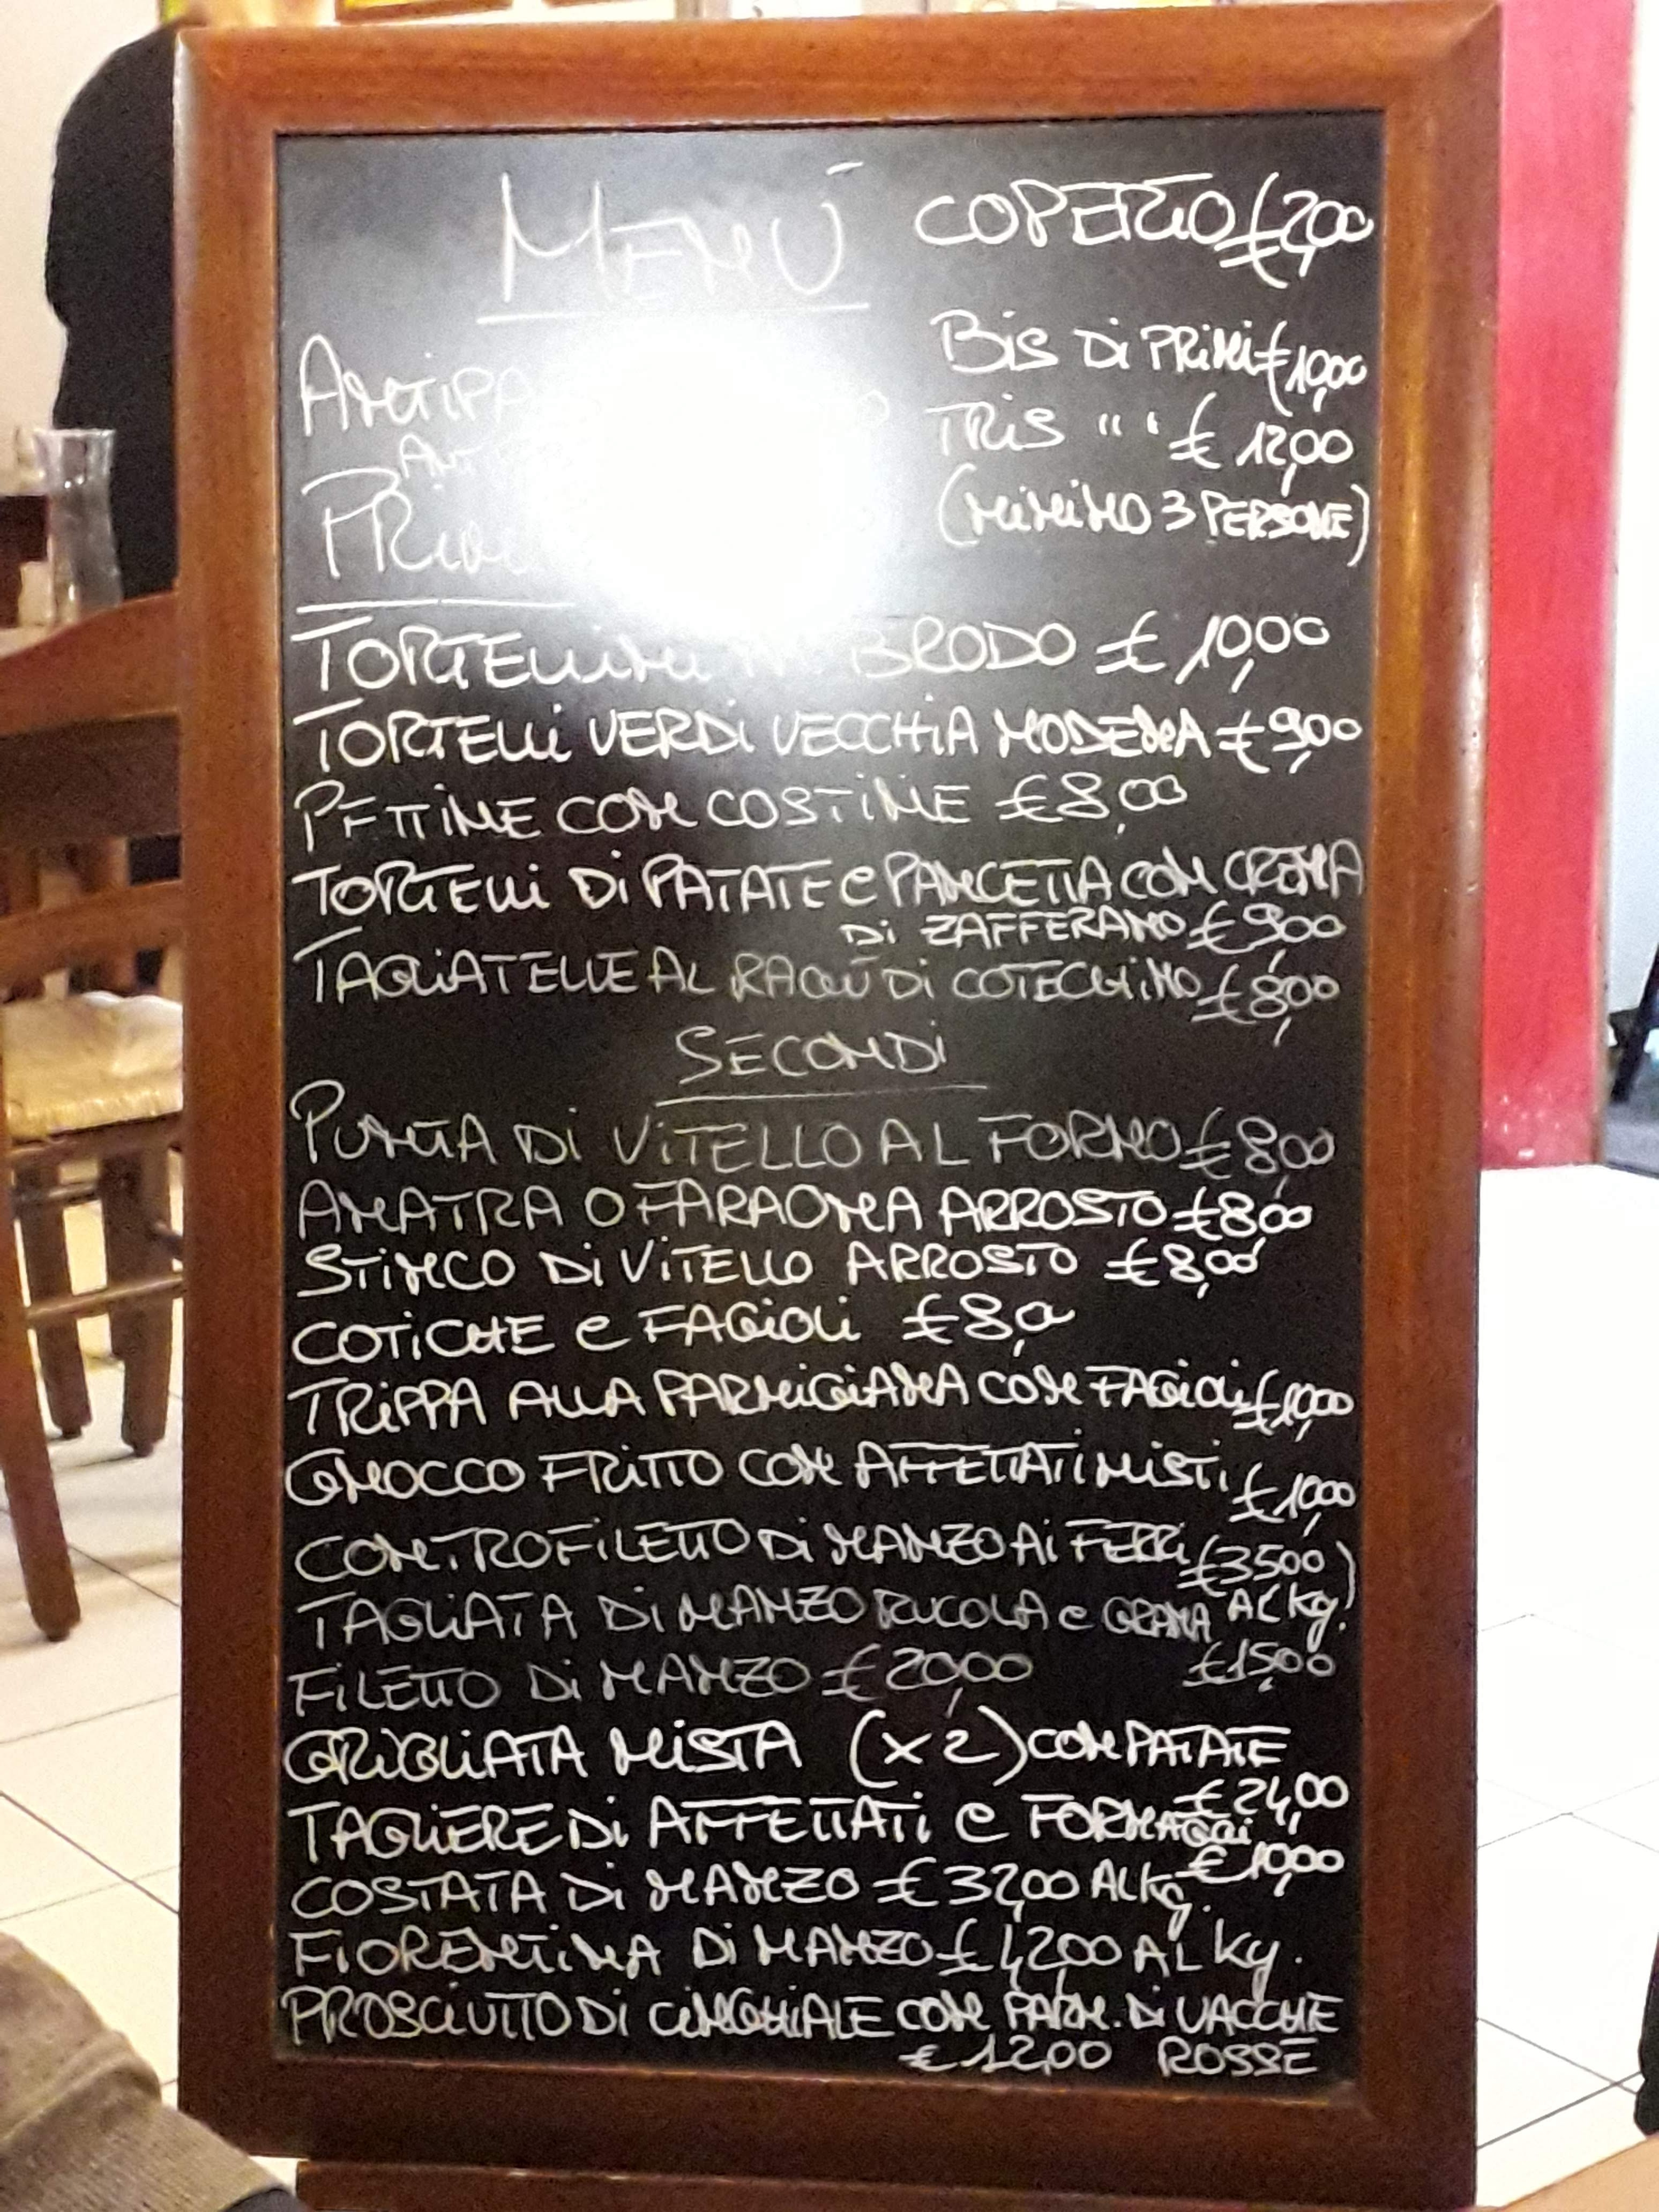 MENÚ
COPERTO €2,00
BIS DI PRIMI €10,00
TRIS " " € 12,00
(MINIMO 3 PERSONE)
TORTELLINI IN BRODO € 10,00
TORTELLI VERDI VECCHIA MODENA €9,00
PETTINE CON COSTINE €8,00
TORTELLI DI PATATE e PANCETTA CON CREMA
DI ZAFFERANO €9,00
TAGLIATELLE AL RAGÚ DI COTECHINO €8,00
SECONDI
PUNTA DI VITELLO AL FORNO €8,00
ANATRA O FARAONA ARROSTO €8,00
STINCO DI VITELLO ARROSTO €8,00
COTICHE e FAGIOLI €8,00
TRIPPA ALLA PARMIGIANA CON FAGIOLI €10,00
GNOCCO FRITTO CON AFFETTATI MISTI €10,00
CONTROFILETTO DI MANZO AI FERRI (€3500
AL kg.)
TAGLIATA DI MANZO RUCOLA e GRANA
€15,00
FILETTO DI MANZO €20,00
GRIGLIATA MISTA (x 2) CON PATATE
€24,00
TAGLIERE DI AFFETTATI e FORMAGGI
€10,00
COSTATA DI MANZO €37,00 AL kg.
FIORENTINA DI MANZO € 42,00 AL kg.
PROSCIUTTO DI CINGHIALE CON PARM. DI VACCHE
€12,00 ROSSE